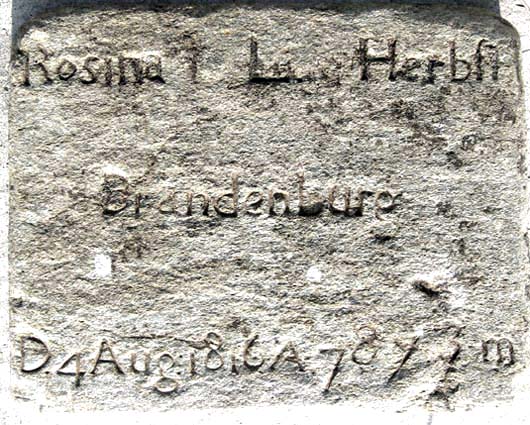 Rosina Herbst
Brandenburg
D. 4 Aug. 1816. A. 78 y 7 m